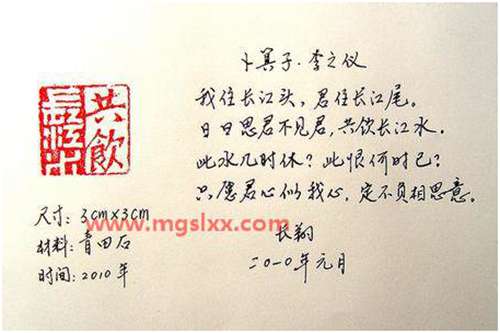 卜算子·李之仪
我住长江头，君住长江尾。
日日思君不见君，共饮长江水。
此水几时休？此恨何时已？
只愿君心似我心，定不负相思意。
长翔
二〇一〇年元月
共飲
長江水
尺寸：3cm×3cm
材料：青田石
时间：2010年
www.mgslxx.com